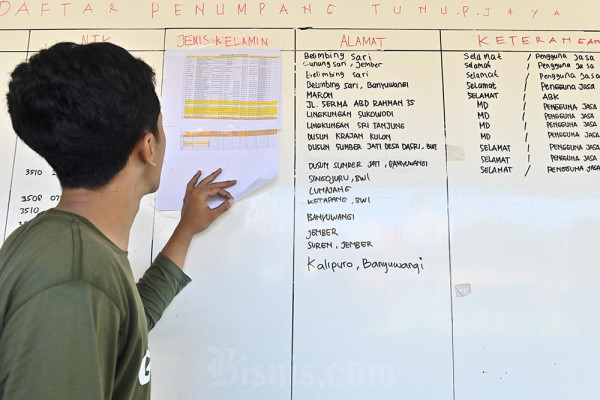 DAFTAR PENUMPANG TUNU.P.JAYA
NIK JENIS KELAMIN ALAMAT KETERANGAN
Belimbing Sari Selamat / Pengguna Jasa
Gunung Sari, Jember Selamat / Pengguna Jasa
Belimbing Sari Selamat / Pengguna Jasa
Belimbing Sari, Banyuwangi Selamat / Pengguna Jasa
MARON SELAMAT / ABK
JL. SERMA ABD RAHMAN 35 MD / PENGGUNA JASA
LINGKUNGAN SUKOWIDI MD / PENGGUNA JASA
LINGKUNGAN SRI TANJUNG MD / PENGGUNA JASA
DUSUN KRAJAN KULON MD / PENGGUNA JASA
DUSUN SUMBER JATI DESA DASRU, BWI SELAMAT / PENGGUNA JASA
3510 DUSUN SUMBER JATI, BANYUWANGI SELAMAT / PENGGUNA JASA
SINGOJURU, BWI SELAMAT / PENGGUNA JASA
LUMAJANG
3508 KETAPANG, BWI
3510 BANYUWANGI
JEMBER
SUREN, JEMBER
Kalipuro, Banyuwangi
Bisnis.com